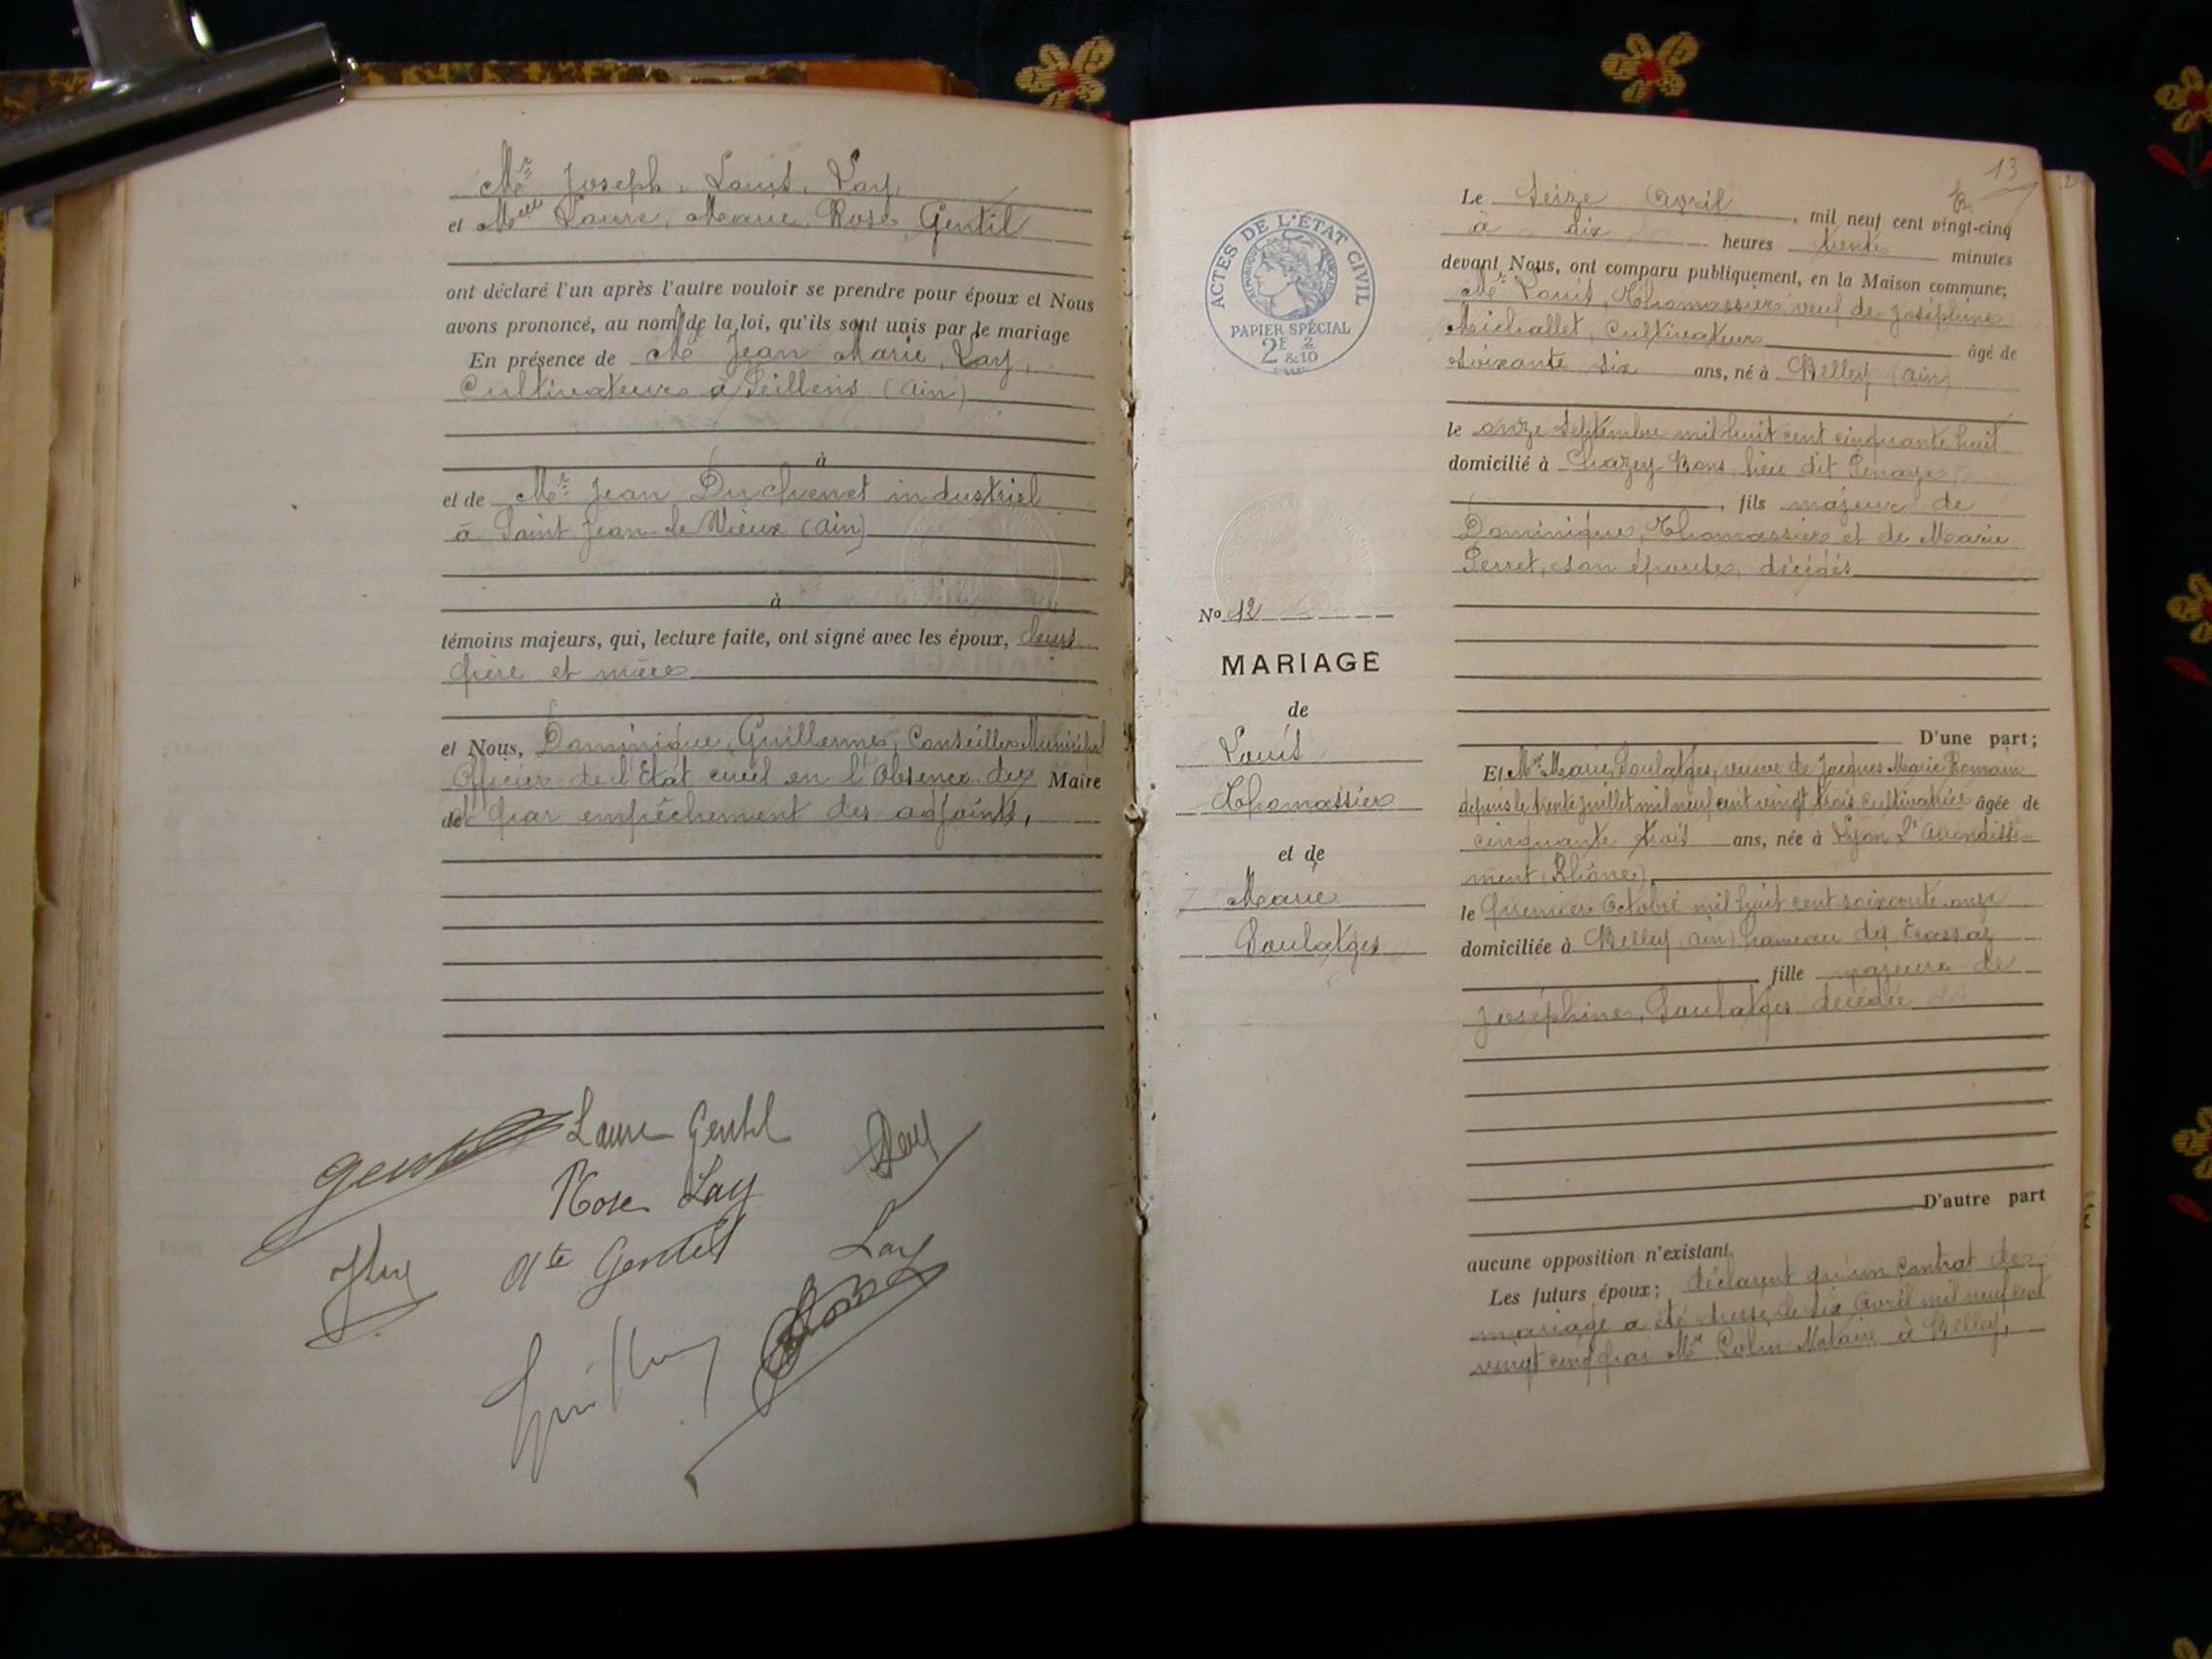 Mr Joseph, Louis, Lay,
et Melle Laure, Marie, Rose, Gentil
ont déclaré l'un après l'autre vouloir se prendre pour époux et Nous
avons prononcé, au nom de la loi, qu'ils sont unis par le mariage
En présence de Mr Jean Marie, Lay,
Cultivateur à Seillens (Ain)
à
et de Mr Jean Duchenet industriel
à Saint Jean-le-Vieux (Ain)
à
témoins majeurs, qui, lecture faite, ont signé avec les époux, leurs
père et mère
et Nous, Dominique, Guillerme, Conseiller Municipal
Officier de l'Etat civil en l'Absence du Maire
et par empêchement des adjoints,
Laure Gentil
Rose Lay
Gentil
Lay
13
Le Seize Avril, mil neuf cent vingt-cinq
à dix heures trente minutes
devant Nous, ont comparu publiquement, en la Maison commune;
Mr Louis, Thomassier, veuf de Joséphine
Michallet, Cultivateur âgé de
soixante six ans, né à Belley (Ain)
le onze Septembre mil huit cent cinquante huit
domicilié à Chazey-Bons lieu dit
, fils majeur de
Dominique, Thomassier et de Marie
Perret, son épouse, décédés
D'une part;
Et Marie, Soulatges, veuve de Jacques Marie Romain
depuis le trente juillet mil neuf cent vingt trois cultivatrice âgée de
cinquante trois ans, née à Lyon 2e Arrondisse-
ment (Rhône)
le premier Octobre mil huit cent soixante onze
domiciliée à Belley (Ain) hameau des
fille majeure de
Joséphine, Soulatges décédée
D'autre part
aucune opposition n'existant
Les futurs époux; déclarent qu'un contrat de
mariage a été dressé le dix Avril mil neuf cent
vingt cinq par Me Colin Notaire à Belley,
ACTES DE L'ÉTAT CIVIL
PAPIER SPÉCIAL
2E 2
&10
No 12
MARIAGE
de
Louis
Thomassier
et de
Marie
Soulatges